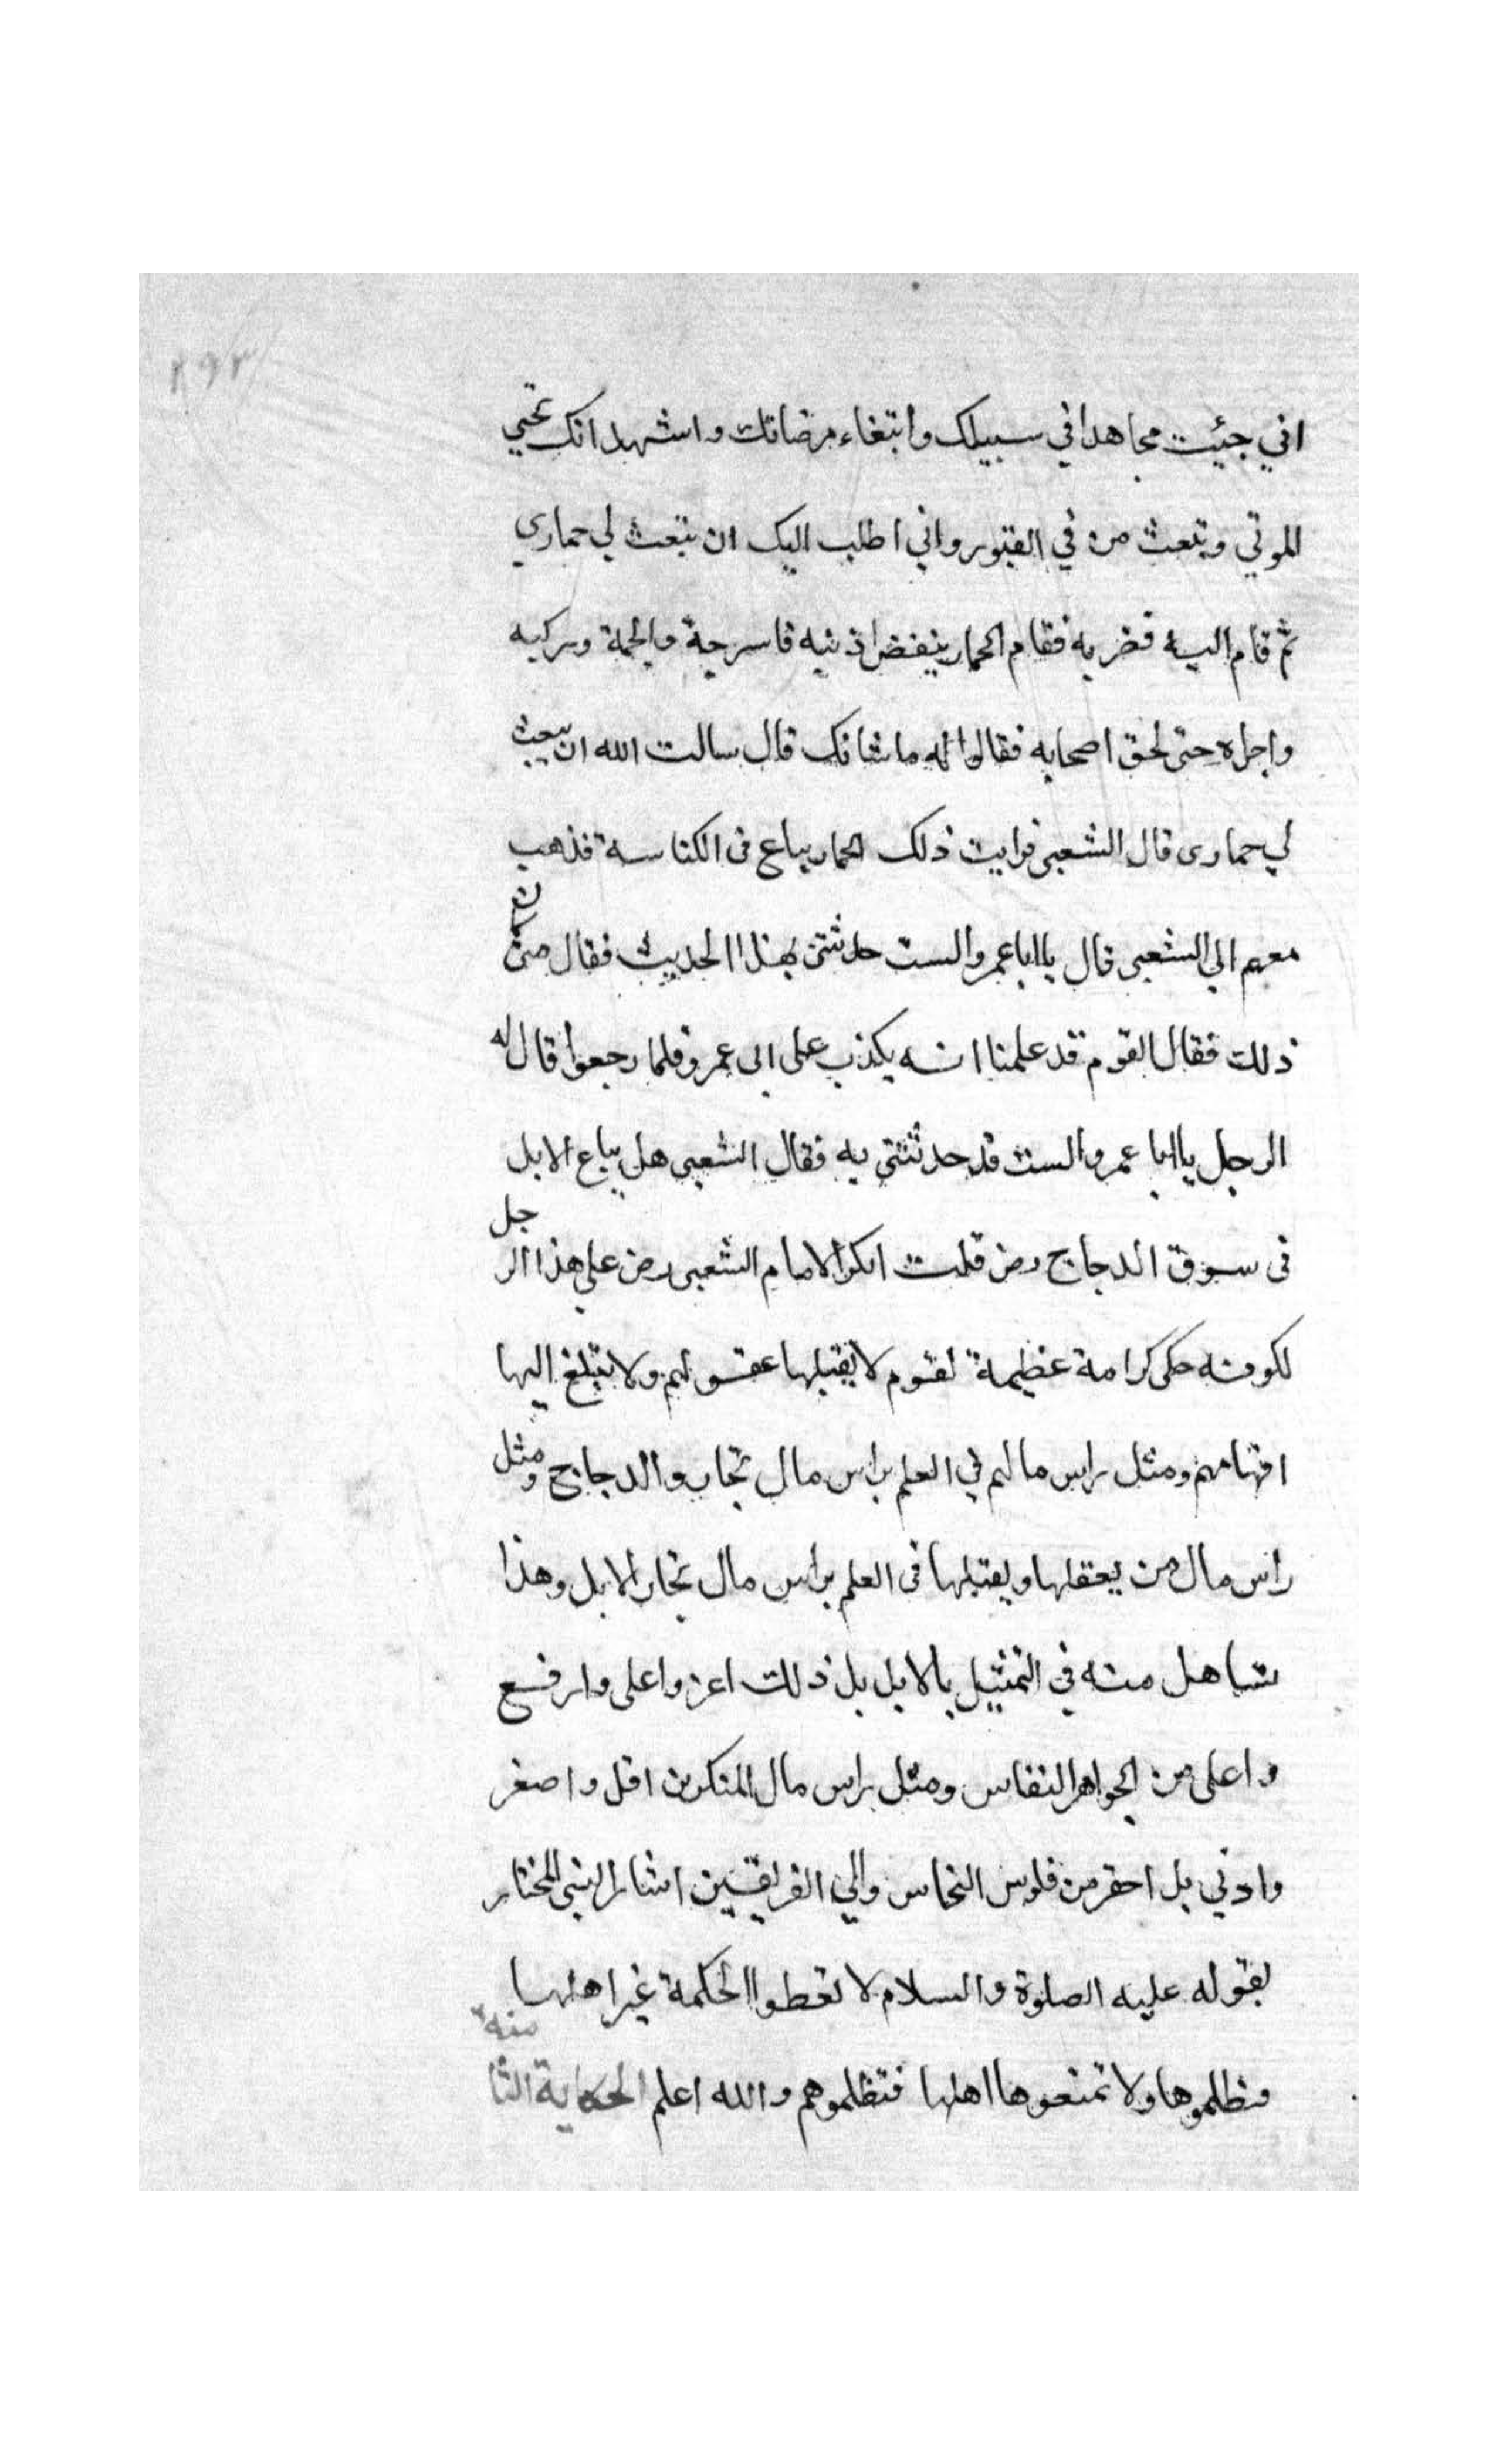 ٢٩٣
اني جئيت مجاهدا في سبيلك وابتغاء مرضاتك واشهد انك تحيي
الموتي وتبعث من في القبور واني اطلب اليك ان تبعث لي حماري
ثم قام اليه فضربه فقام الحمار ينفض اذنيه فاسرجة والجمة وركبه
واجراه حتى لحق اصحابه فقالوا له ما شانك قال سالت الله ان يبعث
لي حمارى قال الشعبى فرايت ذلك الحمار يباع فى الكناسة فذهب
معهم الي الشعبى قال يا ابا عمرو الست حدثتنى بهذا الحديث فقال متى كان
ذلك فقال القوم قد علمنا انه يكذب على ابى عمرو فلما رجعوا قال له
الرجل يا ابا عمرو الست قد حدثتنى به فقال الشعبى هل يباع الابل
فى سوق الدجاج رض قلت انكر الامام الشعبى رض علي هذا الرجل
لكونه حكى كرامة عظيمة لقوم لا يقبلها عقولهم ولا تبلغ اليها
افهامهم ومثل راس مالهم في العلم براس مال تجار والدجاج ومثل
راس مال من يعقلها ويقبلها فى العلم براس مال تجار الابل وهذا
تساهل منه في التمثيل بالابل بل ذلك اعز واعلى وارفع
واعلى من الجواهر النفاس ومثل راس مال المنكرين اقل واصغر
وادني بل احقر من فلوس النحاس والي الفريقين اشار النبى المختار
بقوله عليه الصلوة والسلام لا تعطوا الحكمة غير اهلها
فتظلموها ولا تمنعوها اهلها فتظلموهم والله اعلم الحكاية الثامنة